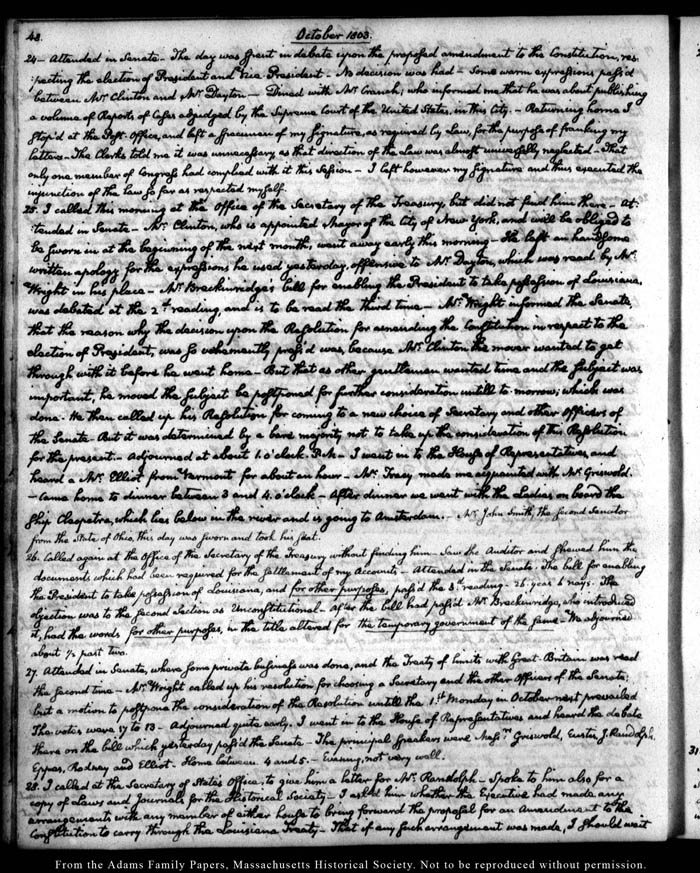 48.
October 1803.
24 — Attended in Senate — The day was spent in debate upon the proposed amendment to the Constitution, res-
:pecting the election of President and Vice President — No decision was had — Some warm expressions pass'd
between Mr. Clinton and Mr. Dayton — Dined with Mr. Cranch, who informed me that he was about publishing
a volume of Reports of Cases adjudged by the Supreme Court of the United States, in this City. — Returning home I
stop'd at the Post-Office, and left a specimen of my signature, as required by Law, for the purpose of franking my
letters — The Clerks told me it was unnecessary as that direction of the Law was almost universally neglected — That
only one member of Congress had complied with it this Session — I left however my signature and thus executed the
injunction of the Law so far as respected myself.
25. I called this morning at the Office of the Secretary of the Treasury, but did not find him there — At-
:tended in Senate — Mr. Clinton, who is appointed Mayor of the City of New York, and will be obliged to
be sworn in at the beginning of the next month, went away early this morning — He left an handsome
written apology for the expressions he used yesterday, offensive to Mr. Dayton, which was read by Mr.
Wright in his place — Mr. Breckinridge's bill for enabling the President to take possession of Louisiana,
was debated at the 2d. reading, and is to be read the third time — Mr. Wright informed the Senate
that the reason why the decision upon the Resolution for amending the Constitution in respect to the
election of President, was so vehemently press'd was, because Mr. Clinton the mover wanted to get
through with it before he went home — But that as other gentlemen wanted time and the subject was
important, he moved the subject be postponed for further consideration untill to-morrow; which was
done. He then called up his Resolution for coming to a new choice of Secretary and other Officers of
the Senate — But it was determined by a bare majority not to take up the consideration of this Resolution
for the present — Adjourned at about 1. o'clock P.M — I went in to the House of Representatives, and
heard a Mr. Elliot from Vermont for about an hour — Mr. Tracy made me acquainted with Mr. Griswold.
— Came home to dinner between 3 and 4. o'clock — After dinner we went with the Ladies on board the
ship Cleopatra, which lies below in the river and is going to Amsterdam. — Mr. John Smith, the second Senator
from the State of Ohio, this day was sworn and took his seat.
26. Called again at the Office of the Secretary of the Treasury without finding him — Saw the Auditor and shewed him the
documents which had been required for the settlement of my Accounts — Attended in the Senate. The bill for enabling
the President to take possession of Louisiana, and for other purposes, pass'd the 3d. reading — 26. yeas 6 nays. The
objection was to the second Section as Unconstitutional — After the bill had pass'd Mr. Breckinridge, who introduced
it, had the words for other purposes, in the title altered for the temporary government of the same — We adjourned
about 1/2 past two.
27. Attended in Senate, where some private business was done, and the Treaty of limits with Great-Britain was read
the second time — Mr. Wright called up his resolution for choosing a Secretary and the other Officers of the Senate;
but a motion to postpone the consideration of the Resolution untill the 1st Monday in October next prevailed
The votes were 17 to 13 — Adjourned quite early. I went in to the House of Representatives and heard the debate
there on the bill which yesterday pass'd the Senate — The principal speakers were Mess.rs Griswold, Eustis, J. Randolph,
Eppes, Rodney and Elliot. Home between 4 and 5. — Evening, not very well.
28. I called at the Secretary of State's Office, to give him a letter for Mr. Randolph — Spoke to him also for a
copy of Laws and Journals for the Historical Society — I ask'd him whether the Executive had made any
arrangements with any member of either house to bring forward the proposal for an Amendment to the
Constitution to carry through the Louisiana Treaty — That if any such arrangement was made, I should wait
31
From the Adams Family Papers, Massachusetts Historical Society. Not to be reproduced without permission.